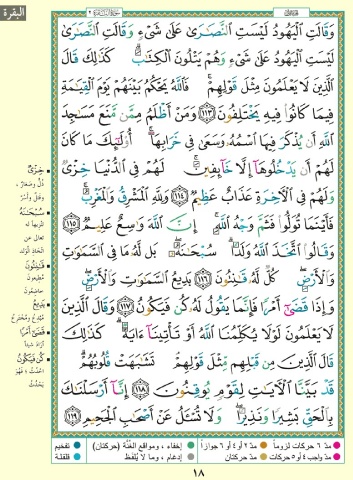 البقرة
وَقَالَتِ ٱلْيَهُودُ لَيْسَتِ ٱلنَّصَٰرَىٰ عَلَىٰ شَىْءٍ وَقَالَتِ ٱلنَّصَٰرَىٰ
لَيْسَتِ ٱلْيَهُودُ عَلَىٰ شَىْءٍ وَهُمْ يَتْلُونَ ٱلْكِتَٰبَ ۗ كَذَٰلِكَ قَالَ
ٱلَّذِينَ لَا يَعْلَمُونَ مِثْلَ قَوْلِهِمْ ۚ فَٱللَّهُ يَحْكُمُ بَيْنَهُمْ يَوْمَ ٱلْقِيَٰمَةِ
فِيمَا كَانُوا۟ فِيهِ يَخْتَلِفُونَ ﴿١١٣﴾ وَمَنْ أَظْلَمُ مِمَّن مَّنَعَ مَسَٰجِدَ
ٱللَّهِ أَن يُذْكَرَ فِيهَا ٱسْمُهُۥ وَسَعَىٰ فِى خَرَابِهَآ ۚ أُو۟لَٰٓئِكَ مَا كَانَ
لَهُمْ أَن يَدْخُلُوهَآ إِلَّا خَآئِفِينَ ۚ لَهُمْ فِى ٱلدُّنْيَا خِزْىٌ
وَلَهُمْ فِى ٱلْءَاخِرَةِ عَذَابٌ عَظِيمٌ ﴿١١٤﴾ وَلِلَّهِ ٱلْمَشْرِقُ وَٱلْمَغْرِبُ ۚ
فَأَيْنَمَا تُوَلُّوا۟ فَثَمَّ وَجْهُ ٱللَّهِ ۚ إِنَّ ٱللَّهَ وَٰسِعٌ عَلِيمٌ ﴿١١٥﴾
وَقَالُوا۟ ٱتَّخَذَ ٱللَّهُ وَلَدًا ۗ سُبْحَٰنَهُۥ ۖ بَل لَّهُۥ مَا فِى ٱلسَّمَٰوَٰتِ
وَٱلْأَرْضِ ۖ كُلٌّ لَّهُۥ قَٰنِتُونَ ﴿١١٦﴾ بَدِيعُ ٱلسَّمَٰوَٰتِ وَٱلْأَرْضِ ۖ
وَإِذَا قَضَىٰٓ أَمْرًا فَإِنَّمَا يَقُولُ لَهُۥ كُن فَيَكُونُ ﴿١١٧﴾ وَقَالَ ٱلَّذِينَ
لَا يَعْلَمُونَ لَوْلَا يُكَلِّمُنَا ٱللَّهُ أَوْ تَأْتِينَآ ءَايَةٌ ۗ كَذَٰلِكَ
قَالَ ٱلَّذِينَ مِن قَبْلِهِم مِّثْلَ قَوْلِهِمْ ۘ تَشَٰبَهَتْ قُلُوبُهُمْ ۗ
قَدْ بَيَّنَّا ٱلْءَايَٰتِ لِقَوْمٍ يُوقِنُونَ ﴿١١٨﴾ إِنَّآ أَرْسَلْنَٰكَ
بِٱلْحَقِّ بَشِيرًا وَنَذِيرًا ۖ وَلَا تُسْـَٔلُ عَنْ أَصْحَٰبِ ٱلْجَحِيمِ ﴿١١٩﴾
خِزْىٌ
ذُلٌّ وَصَغَارٌ
وَقَتْلٌ وَأَسْرٌ
سُبْحَٰنَهُۥ
تنزيهاً له
تعالى عن
اتخاذ الولد
قَٰنِتُونَ
مطيعون
خاضعون
بَدِيعُ
مُبْدِعُ وَمُخْتَرِعُ
قَضَىٰٓ أَمْرًا
أراد شيئاً
كُن فَيَكُونُ
احْدُثْ ؛ فهو
يَحْدُثُ
مدّ ٦ حركات لزوماً
مدّ ٢ أو ٤ أو ٦ جوازاً
إخفاء، ومواقع الغُنَّة (حركتان)
تفخيم
مدّ واجب ٤ أو ٥ حركات
مدّ حركتان
إدغام، وما لا يُلفظ
قلقلة
١٨